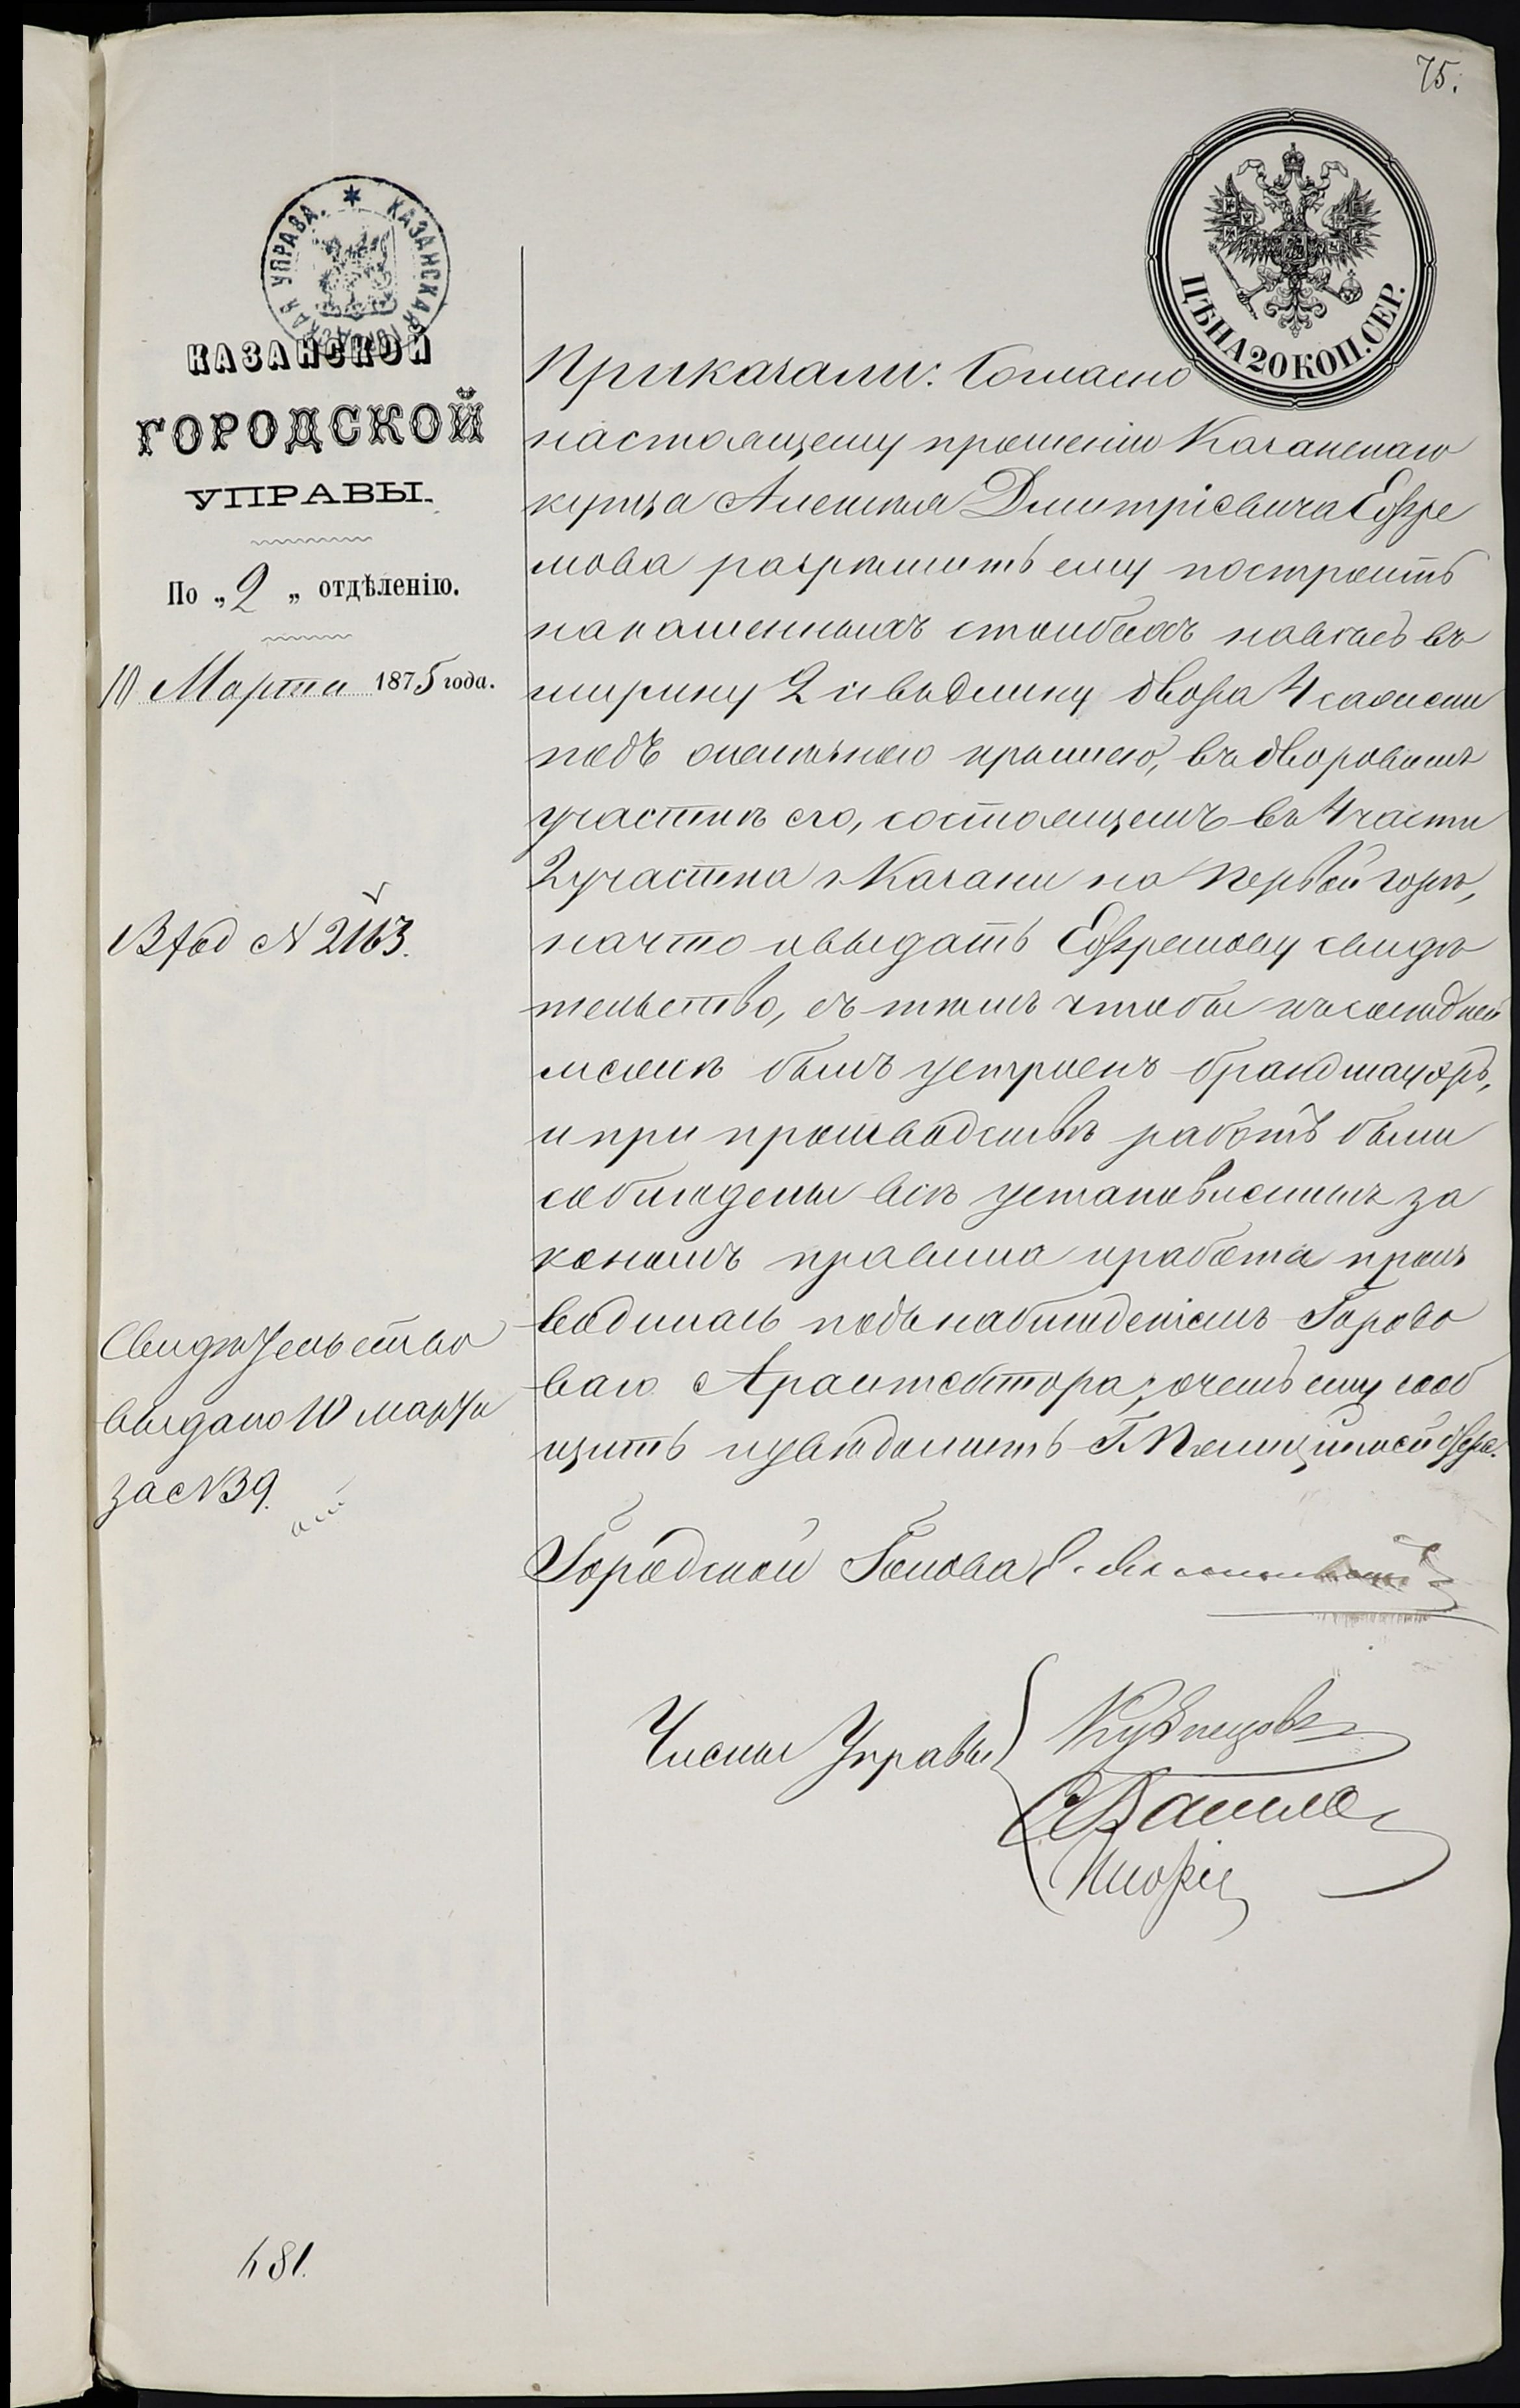 75.
КАЗАНСКАЯ ГОРОДСКАЯ УПРАВА.
ЦѢНА 20 КОП. СЕР.
КАЗАНСКОЙ
ГОРОДСКОЙ
УПРАВЫ.
По „2„ отдѣленію.
10 Марта 1875 года.
Вход N 2163.
Свидѣтельство
выдано 10 марта
за N 39.
481.
Приказали: Согласно
настоящему прошенію Казанскаго
купца Алексѣя Дмитріевича Ефре
мова разрѣшить ему построить
на каменныхъ столбахъ навѣсъ въ
ширину 2 и въ длину двора 4 сажени
подъ желѣзною крышею, въ дворовомъ
участкѣ его, состоящемъ въ 4 части
2 участка г. Казани на Первой горѣ,
на что и выдать Ефремову свидѣ
тельство, съ тѣмъ чтобы къ сосѣдней
межѣ былъ устроенъ брандмауэръ,
и при производствѣ работъ были
соблюдены всѣ установленныя за
кономъ правила и работа произ
водилась подъ наблюденіемъ Городо
ваго Архитектора; о чемъ ему сооб
щить и увѣдомить Г. Полицiймейстера.
Городской Голова Е.
Члены Управы
Кузнецовъ